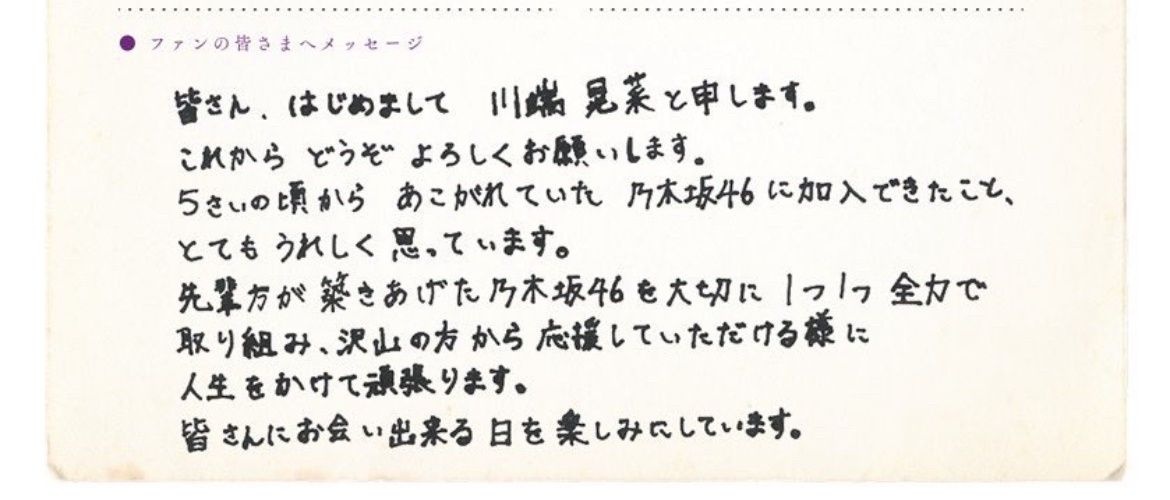 ● ファンの皆さまへメッセージ
皆さん、はじめまして 川端 晃菜と申します。
これから どうぞ よろしくお願いします。
5さいの頃から あこがれていた 乃木坂46に加入できたこと、
とても うれしく 思っています。
先輩方が 築きあげた 乃木坂46を大切に 1つ1つ 全力で
取り組み、沢山の方から 応援していただける様に
人生をかけて頑張ります。
皆さんにお会い出来る日を楽しみにしています。